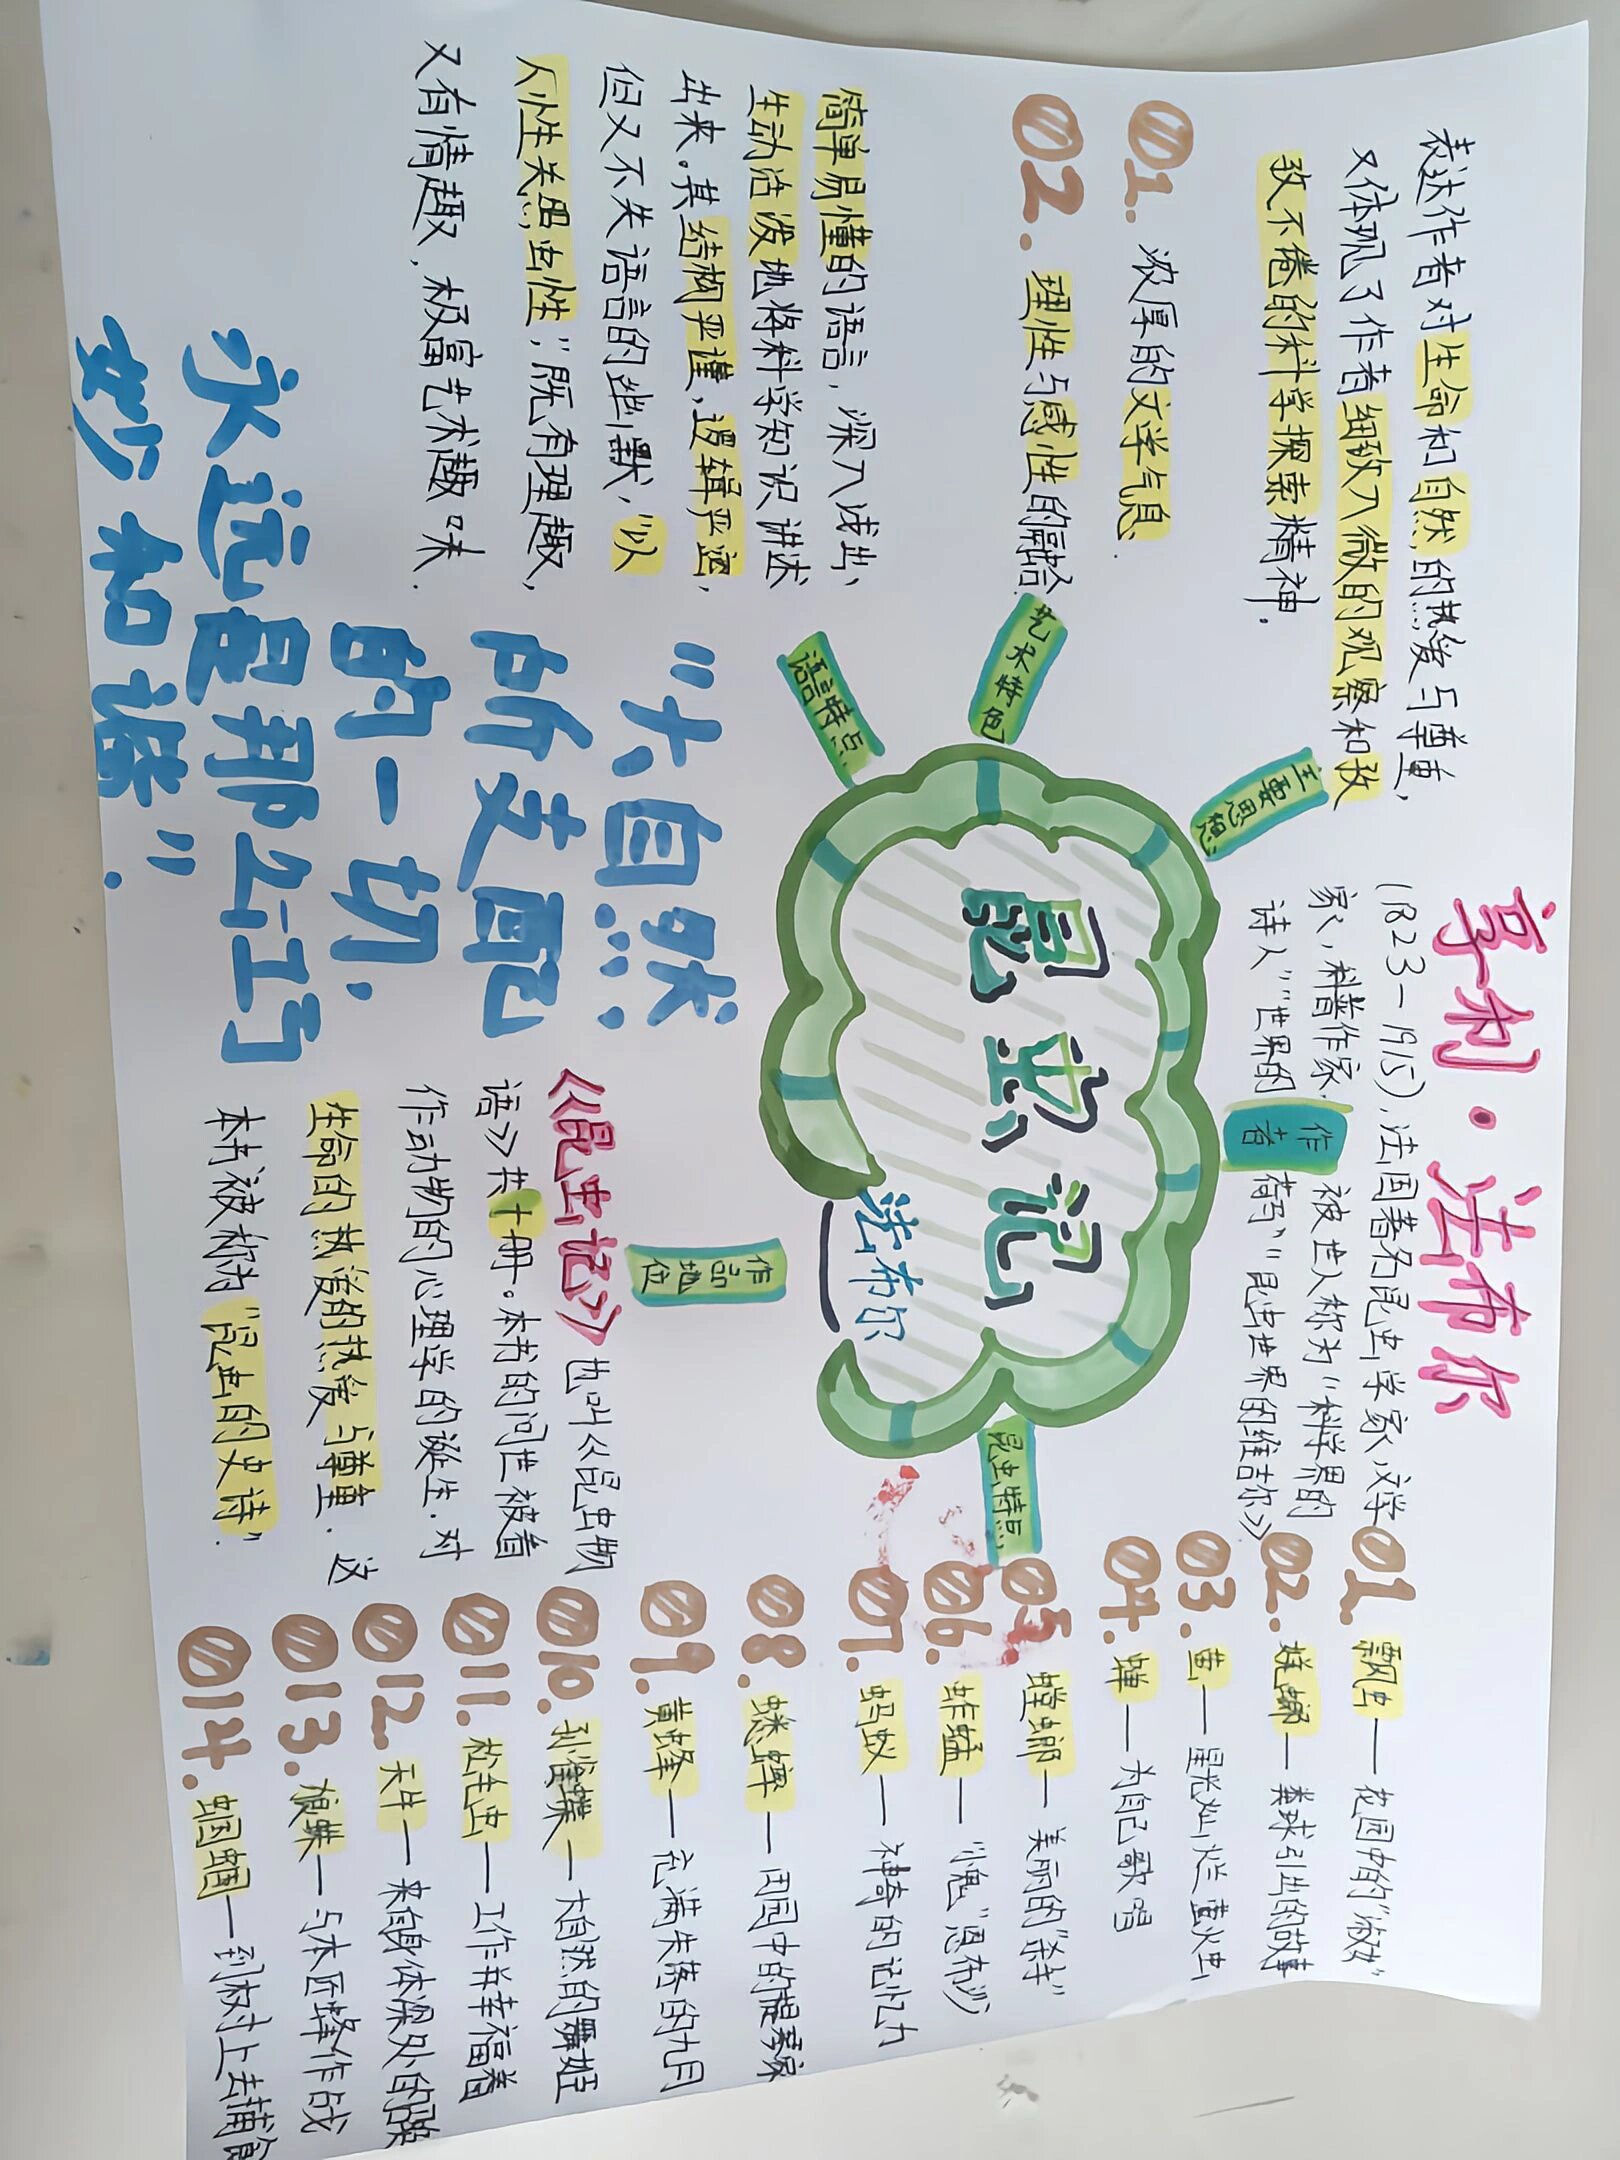 昆虫记
法布尔
主要思想
表达作者对生命和自然的热爱与尊重,
又体现了作者细致入微的观察和孜
孜不倦的科学探索精神.
艺术特色
01. 浓厚的文学气息.
02. 理性与感性的融合.
语言特点
简单易懂的语言, 深入浅出、
生动活泼地将科学知识讲述
出来。其结构严谨,逻辑严密,
但又不失语言的幽默, "以
人性关照虫性",既有理趣,
又有情趣,极富艺术趣味.
"大自然,
所支配
的一切,
永远是那么巧
妙和谐".
亨利·法布尔
作者
(1823-1915),法国著名昆虫学家,文学
家,科普作家,被世人称为"科学界的
诗人""世界的荷马""昆虫世界的维吉尔》
作品地位
《昆虫记》也叫《昆虫物
语》共十册。本书的问世被看
作动物的心理学的诞生.对
生命的热爱的热爱与尊重.这
本书被称为"昆虫的史诗".
昆虫特点
01. 瓢虫—花园中的"淑女"
02. 蜣螂—粪球引出的故事
03. 萤—星光灿烂萤火虫
04. 蝉—为自己歌唱
05. 螳螂—美丽的"杀手"
06. 蚱蜢—"小鬼"恩布沙
07. 蚂蚁—神奇的记忆力
08. 蟋蟀—田园中的提琴家
09. 黄蜂—充满失落的九月
010. 孔雀蝶—大自然的舞姬
011. 松毛虫—工作并幸福着
012. 天牛—来自身体深处的
013. 狼蛛—与木匠蜂作战
014. 蝈蝈—到树上去捕食